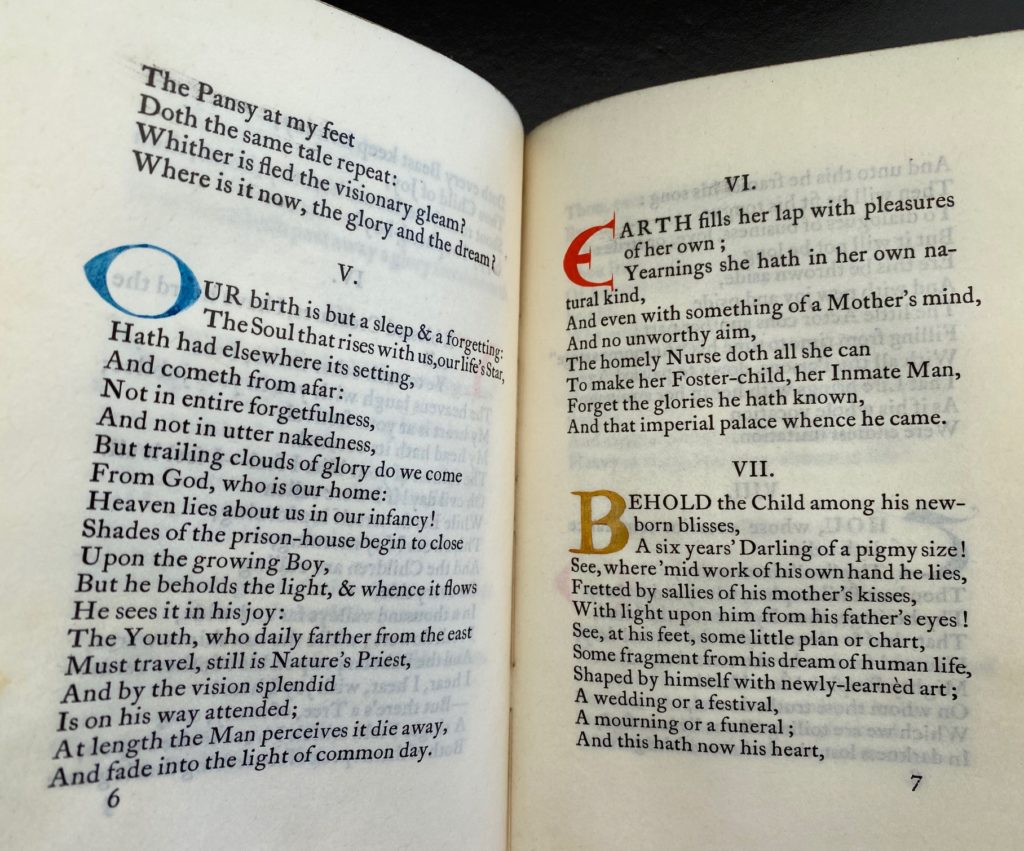 The Pansy at my feet
Doth the same tale repeat:
Whither is fled the visionary gleam?
Where is it now, the glory and the dream?
V.
OUR birth is but a sleep & a forgetting:
The Soul that rises with us, our life's Star,
Hath had elsewhere its setting,
And cometh from afar:
Not in entire forgetfulness,
And not in utter nakedness,
But trailing clouds of glory do we come
From God, who is our home:
Heaven lies about us in our infancy!
Shades of the prison-house begin to close
Upon the growing Boy,
But he beholds the light, & whence it flows
He sees it in his joy:
The Youth, who daily farther from the east
Must travel, still is Nature's Priest,
And by the vision splendid
Is on his way attended;
At length the Man perceives it die away,
And fade into the light of common day.
6
VI.
EARTH fills her lap with pleasures
of her own;
Yearnings she hath in her own na-
tural kind,
And even with something of a Mother's mind,
And no unworthy aim,
The homely Nurse doth all she can
To make her Foster-child, her Inmate Man,
Forget the glories he hath known,
And that imperial palace whence he came.
VII.
BEHOLD the Child among his new-
born blisses,
A six years' Darling of a pigmy size!
See, where 'mid work of his own hand he lies,
Fretted by sallies of his mother's kisses,
With light upon him from his father's eyes!
See, at his feet, some little plan or chart,
Some fragment from his dream of human life,
Shaped by himself with newly-learnèd art;
A wedding or a festival,
A mourning or a funeral;
And this hath now his heart,
7